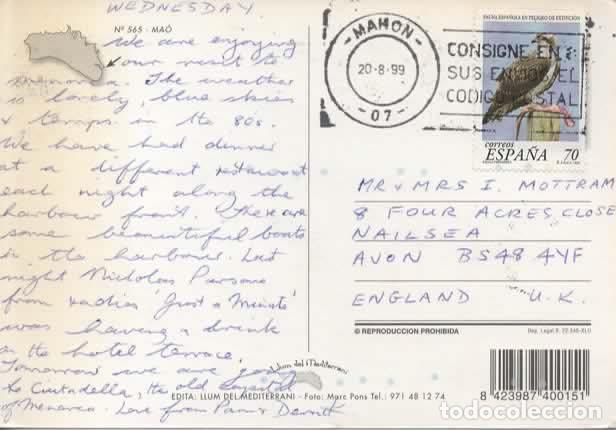 WEDNESDAY
Nº 565 - MAÓ
We are enjoying
our visit to
Menorca. The weather
is lovely, blue skies
& temps in the 80s.
We have had dinner
at a different restaurant
each night along the
harbour front. There are
some beautiful boats
in the harbour. Last
night Nicholas Parsons
from radios 'Just a Minute'
was having a drink
on the hotel terrace.
Tomorrow we are going
to Ciutadella, the old capital
of Menorca. Love from Pam & Derrick
Llum del Mediterrani
EDITA: LLUM DEL MEDITERRANI - Foto: Marc Pons Tel.: 971 48 12 74
MAHON
20-8-99
-07-
CONSIGNE EN
SUS ENVIOS EL
CODIGO POSTAL
FAUNA ESPAÑOLA EN PELIGRO DE EXTINCION
correos
ESPAÑA 70
MR & MRS I. MOTTRAM
8 FOUR ACRES CLOSE
NAILSEA
AVON BS48 4YF
ENGLAND U.K.
© REPRODUCCION PROHIBIDA
8 423987 400151
todocoleccion